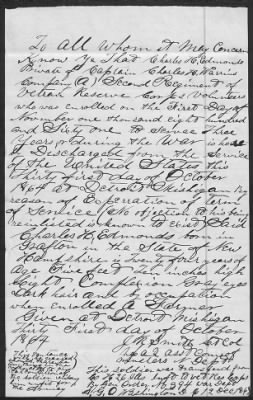 To All whom it May Concern
Know Ye That Charles H. Edmonds
Private of Captain Charles H. Warins
Company (A) Second Regiment of
Vetran Reserve Corps Volunteers
who was enrolled on the First Day of
November one thousand eight hundred
and Sixty one to Serve Three
years or during the War is here
by Discharged from the Service
of the United States this
thirty first day of October
1864 at Detroit Michigan by
reason of Experation of term
of Service (No objection to his being
reenlisted is known to exist) Said
Charles H. Edmonds was Born in
Grafton in the State of New
Hampshire is Twenty four years of
age Five feet Ten inches high
Light Complexion Gray eyes
Dark hair and by occupation
when enrolled a Farmer
Given at Detroit Michigan
Thirty First day of October
1864
Smith Lt Col
This Soldier was transferred from
By Gen Order No 394 War Dept
A.G.O Washington D.C 12 Dec 1863